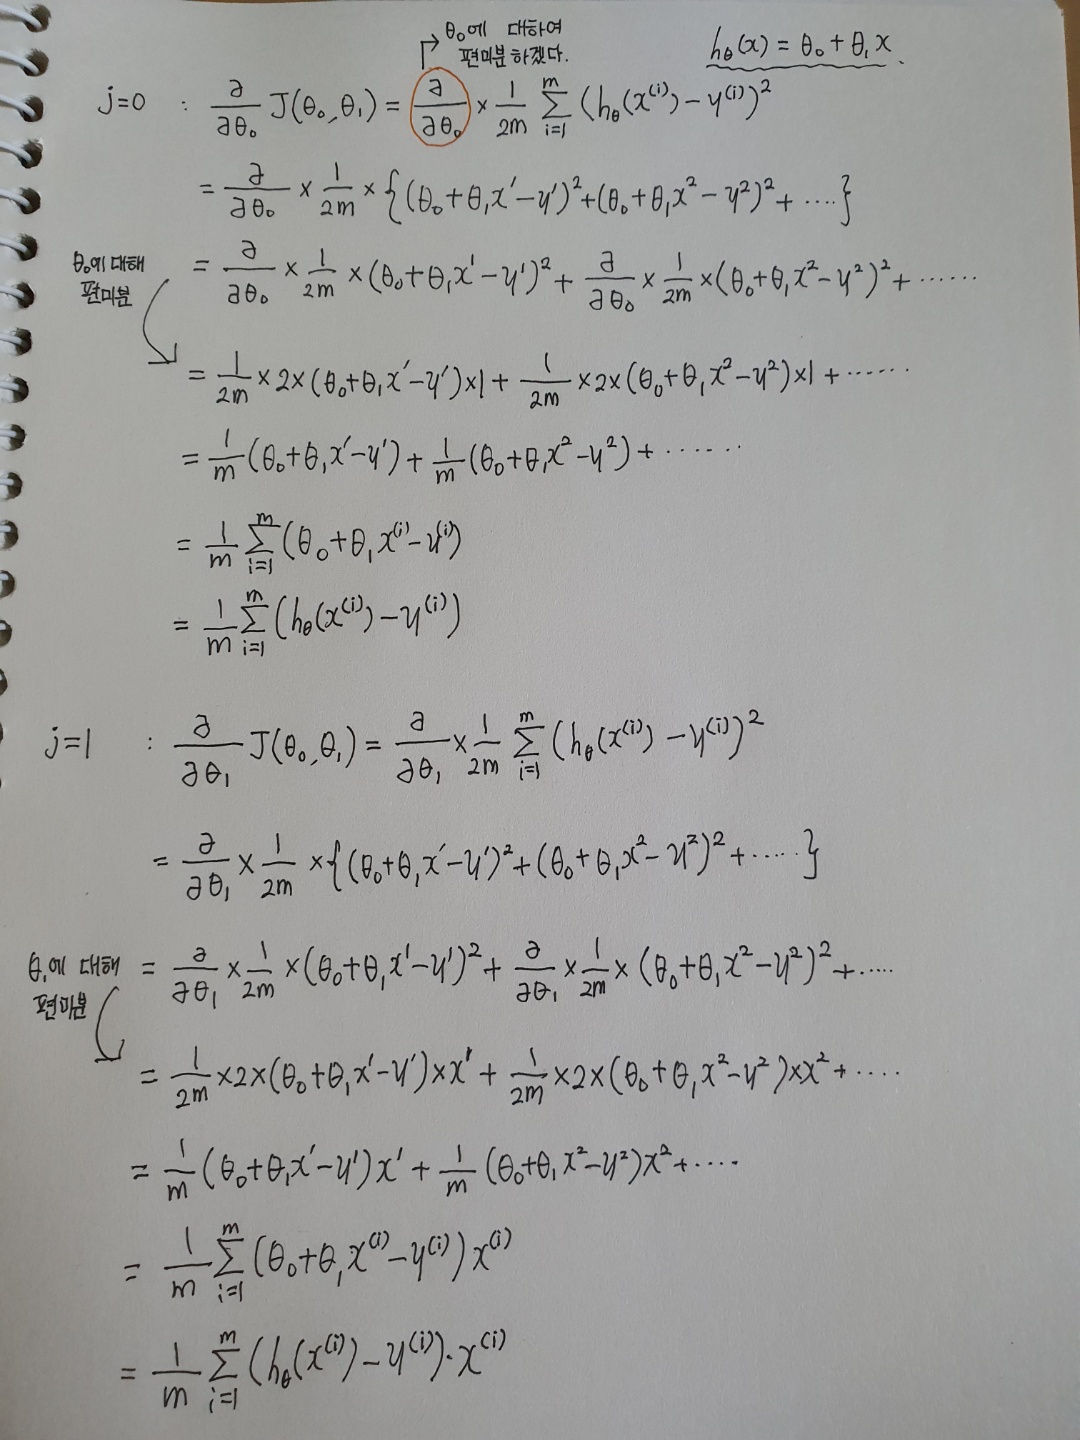 θ₀에 대하여
편미분하겠다.
h_θ(x) = θ₀ + θ₁x
j=0 : ∂/∂θ₀ J(θ₀, θ₁) = ∂/∂θ₀ × 1/2m Σ_{i=1}^{m} (h_θ(x⁽ⁱ⁾) − y⁽ⁱ⁾)²
= ∂/∂θ₀ × 1/2m × {(θ₀+θ₁x¹−y¹)²+(θ₀+θ₁x²−y²)²+ ....}
θ₀에 대해
편미분
= ∂/∂θ₀ × 1/2m × (θ₀+θ₁x¹−y¹)² + ∂/∂θ₀ × 1/2m × (θ₀+θ₁x²−y²)² + ......
= 1/2m × 2 × (θ₀+θ₁x¹−y¹)×1 + 1/2m × 2 × (θ₀+θ₁x²−y²)×1 + ......
= 1/m (θ₀+θ₁x¹−y¹) + 1/m (θ₀+θ₁x²−y²) + ......
= 1/m Σ_{i=1}^{m} (θ₀+θ₁x⁽ⁱ⁾−y⁽ⁱ⁾)
= 1/m Σ_{i=1}^{m} (h_θ(x⁽ⁱ⁾)−y⁽ⁱ⁾)
j=1 : ∂/∂θ₁ J(θ₀, θ₁) = ∂/∂θ₁ × 1/2m Σ_{i=1}^{m} (h_θ(x⁽ⁱ⁾) − y⁽ⁱ⁾)²
= ∂/∂θ₁ × 1/2m × {(θ₀+θ₁x¹−y¹)²+(θ₀+θ₁x²−y²)²+ .....}
θ₁에 대해
편미분
= ∂/∂θ₁ × 1/2m × (θ₀+θ₁x¹−y¹)² + ∂/∂θ₁ × 1/2m × (θ₀+θ₁x²−y²)² + .....
= 1/2m × 2 × (θ₀+θ₁x¹−y¹)×x¹ + 1/2m × 2 × (θ₀+θ₁x²−y²)×x² + ....
= 1/m (θ₀+θ₁x¹−y¹)x¹ + 1/m (θ₀+θ₁x²−y²)x² + ....
= 1/m Σ_{i=1}^{m} (θ₀+θ₁x⁽ⁱ⁾−y⁽ⁱ⁾)x⁽ⁱ⁾
= 1/m Σ_{i=1}^{m} (h_θ(x⁽ⁱ⁾)−y⁽ⁱ⁾)·x⁽ⁱ⁾